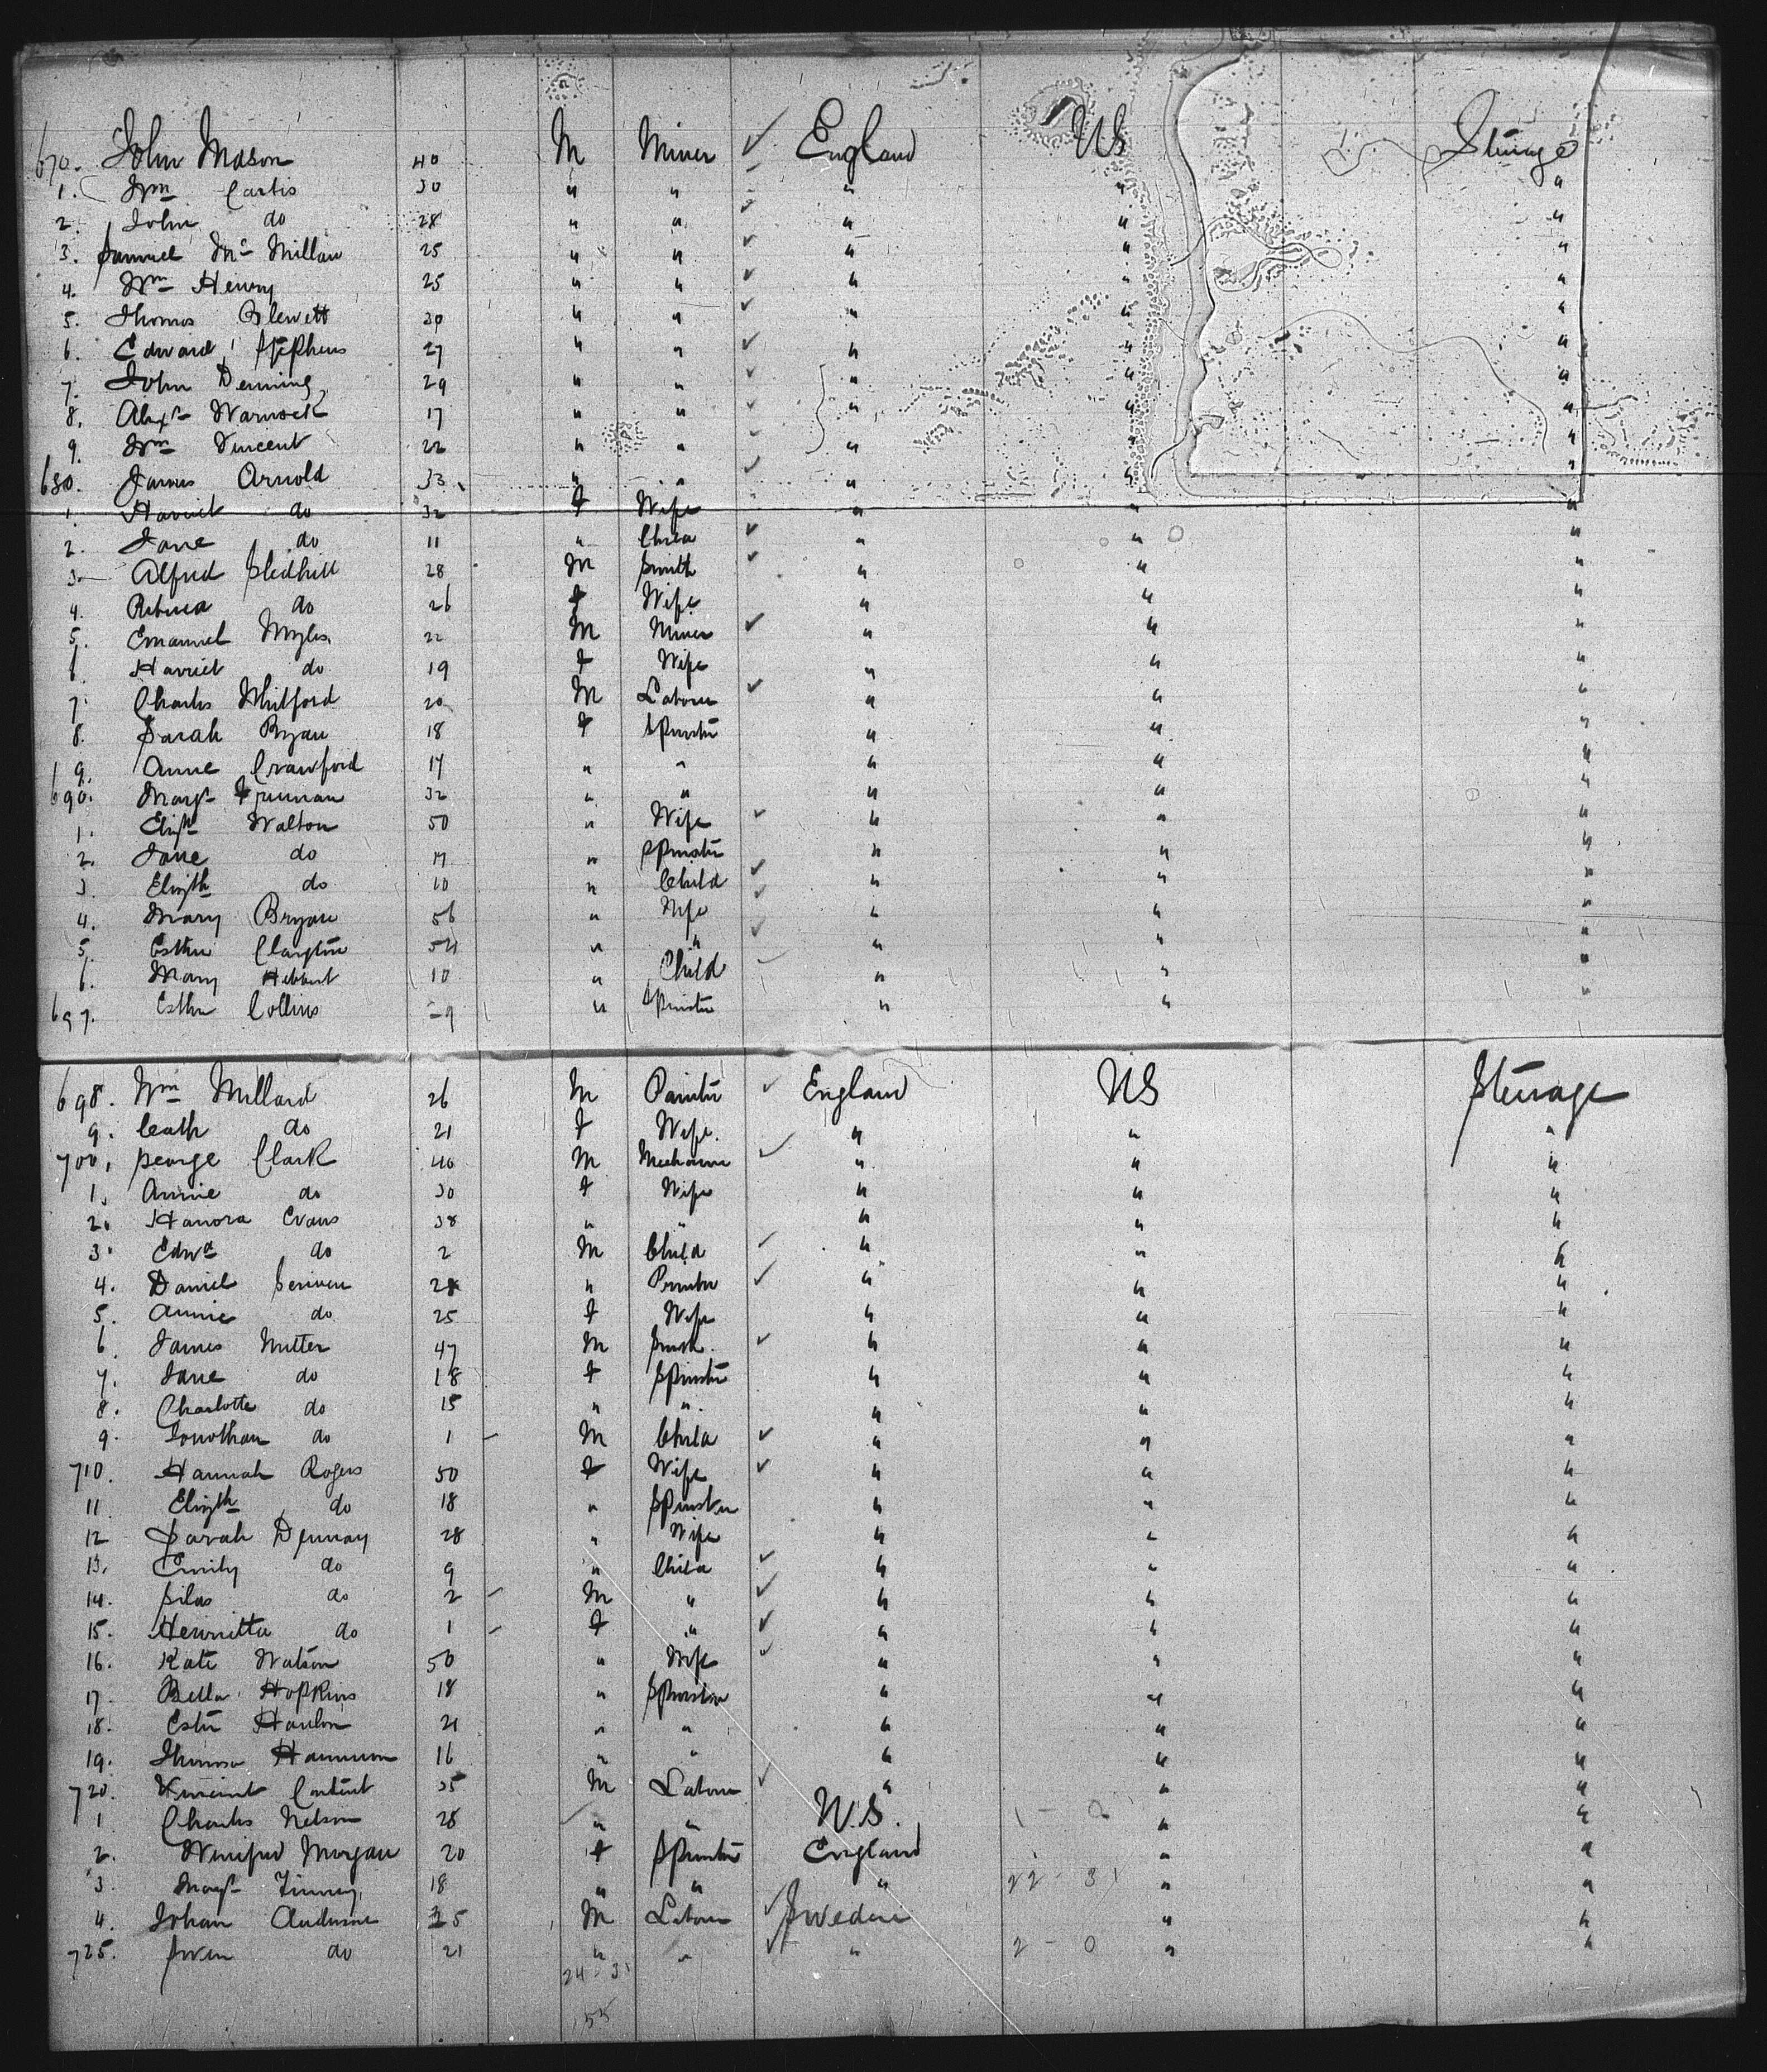 670. John Mason 40 M Miner ✓ England US Steerage
1. Wm Curtis 30 " " " " "
2. John do 28 " " ✓ " " "
3. Samuel Mc Millan 25 " " ✓ " " "
4. Wm Henry 25 " " ✓ " " "
5. Thomas Blewett 30 " " ✓ " " "
6. Edward Stephens 27 " " ✓ " " "
7. John Denning 29 " " ✓ " " "
8. Alexr Warwick 17 " " ✓ " " "
9. Wm Vincent 22 " " ✓ " " "
680. James Arnold 33 " " ✓ " " "
1. Harriet do 32 F Wife " " "
2. Jane do 11 " Child ✓ " " "
3. Alfred Sledhill 28 M Smith ✓ " " "
4. Rebecca do 26 F Wife " " "
5. Emanuel Myles 22 M Miner ✓ " " "
6. Harriet do 19 F Wife " " "
7. Charles Whitford 20 M Laborer ✓ " " "
8. Sarah Ryan 18 F Spinster " " "
9. Anne Crawford 17 " " " " "
690. Margt Freeman 32 " " " " "
1. Elizth Walton 50 " Wife ✓ " " "
2. Jane do 17 " Spinster " " "
3 Elizth do 10 " Child ✓ " " "
4. Mary Bryan 56 " Wife ✓ " " "
5. Esther Clayton 54 " " ✓ " " "
6. Mary Hibbert 10 " Child " " "
697. Esther Collins 29 " Spinster " " "
698. Wm Millard 26 M Painter ✓ England US Steerage
9. Cath do 21 F Wife " " "
700. George Clark 40 M Mechanic ✓ " " "
1. Annie do 30 F Wife " " "
2. Hanora Evans 38 " " " " "
3. Edwd do 2 M Child ✓ " " "
4. Daniel Scriven 28 " Printer ✓ " " "
5. Annie do 25 F Wife " " "
6. James Nutter 47 M Smith ✓ " " "
7. Jane do 18 F Spinster " " "
8. Charlotte do 15 " " " " "
9. Jonothan do 1 M Child ✓ " " "
710. Hannah Rogers 50 F Wife ✓ " " "
11 Elizth do 18 " Spinster " " "
12 Sarah 28 " Wife " " "
13. Emily do 9 " Child ✓ " " "
14. Silas do 2 M " ✓ " " "
15. Henrietta do 1 F " ✓ " " "
16. Kate Watson 50 " Wife ✓ " " "
17. Bella Hopkins 18 " Spinster " " "
18. Ester Hanlon 21 " " " " "
19. 16 " " " " "
720. Vincent 35 M Laborer ✓ " " "
1 Charles Nelson 28 " " U.S. " "
2. Winifred Morgan 20 F Spinster England " "
3. Margt Finney 18 " " " 22 - 31 " "
4. Johan Anderson 25 M Laborer ✓ Sweden " "
725. Swen do 21 " " ✓ " 2 - 0 " "
24 - 31
55